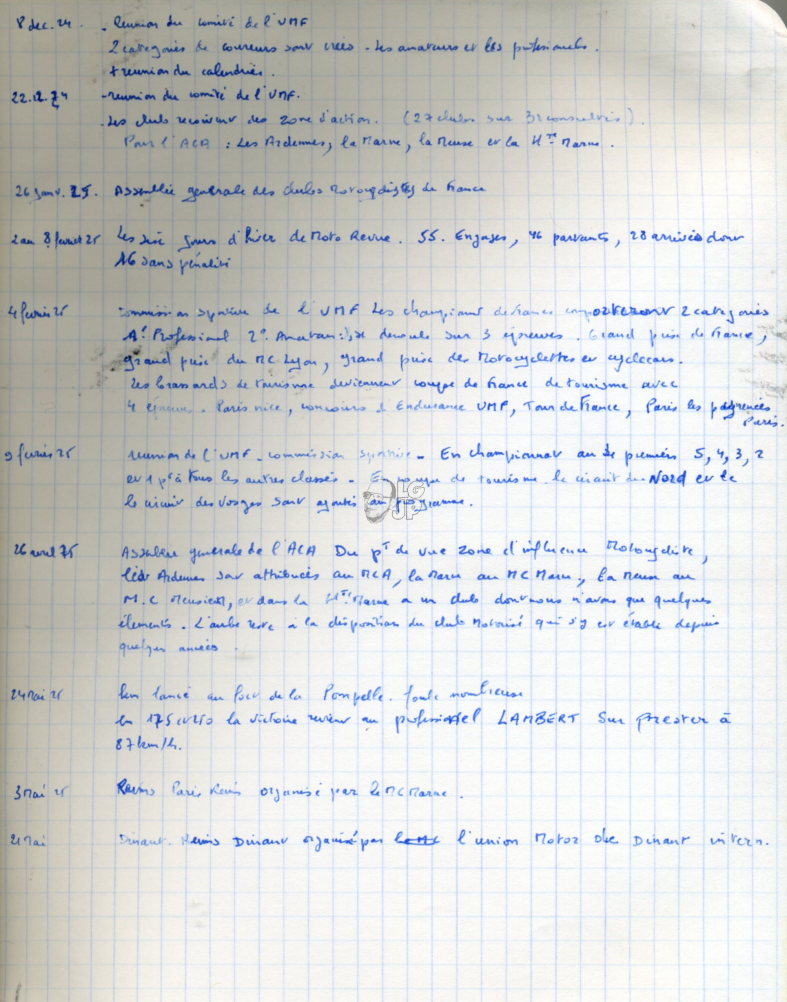 8 dec. 24. - Reunion du comité de l'UMF
2 categories de coureurs sont crées - les amateurs et les professionels.
+ reunion du calendrier.
22.12.24 - reunion du comité de l'UMF.
. Les clubs recoivent des zone d'action. (27 clubs sur 31 consultés).
Pour l'ACA : Les Ardennes, la Marne, la Meuse et la Hte Marne.
26 janv. 25. Assemblée generale des clubs Motocyclistes de France
2 au 8 fevrier 25 Les six jours d'hiver de Moto Revue. 55. Engages, 46 partants, 28 arrivées dont
16 sans pénalité
4 fevrier 25 commission sportive de l'UMF Les championnat de France comporteront 2 categories
1° Professionel 2° Amateur : se deroule sur 3 épreuves. Grand prix de France,
grand prix du MC Lyon, grand prix des Motocyclettes et cyclecars.
Les Brassards de tourisme deviennent coupe de France de tourisme avec
4 épreuves. Paris nice, concours d'Endurance UMF, Tour de France, Paris les pyrenées
Paris.
9 fevrier 25 reunion de l'UMF - commission sportive - En championnat au premiers 5, 4, 3, 2
et 1 pt à tous les autres classés - En coupe de tourisme. le circuit du Nord et le
le circuit des Vosges sont ajoutés au programme.
LG
JP
26 avril 25 Assemblée generale de l'ACA Du pt de vue zone d'influence Motocycliste,
les Ardennes sont attribuées au MCA, la Marne au MC Marne, la Meuse au
M.C Meusien, et dans la Hte Marne a un club dont nous n'avons que quelques
élements. L'aube reste à la disposition du club Motorisé qui s'y est établie depuis
quelques années.
24 Mai 25 km lancé au Fort de la Pompelle. foule nombreuse
En 175 cc la victoire revient au professionel LAMBERT Sur Prester à
87 km/h.
3 Mai 25 Reims Paris Reims organisé par le MC Marne.
21 Mai Dinant. Reims Dinant organisé par le MC l'union Motor de Dinant intern.